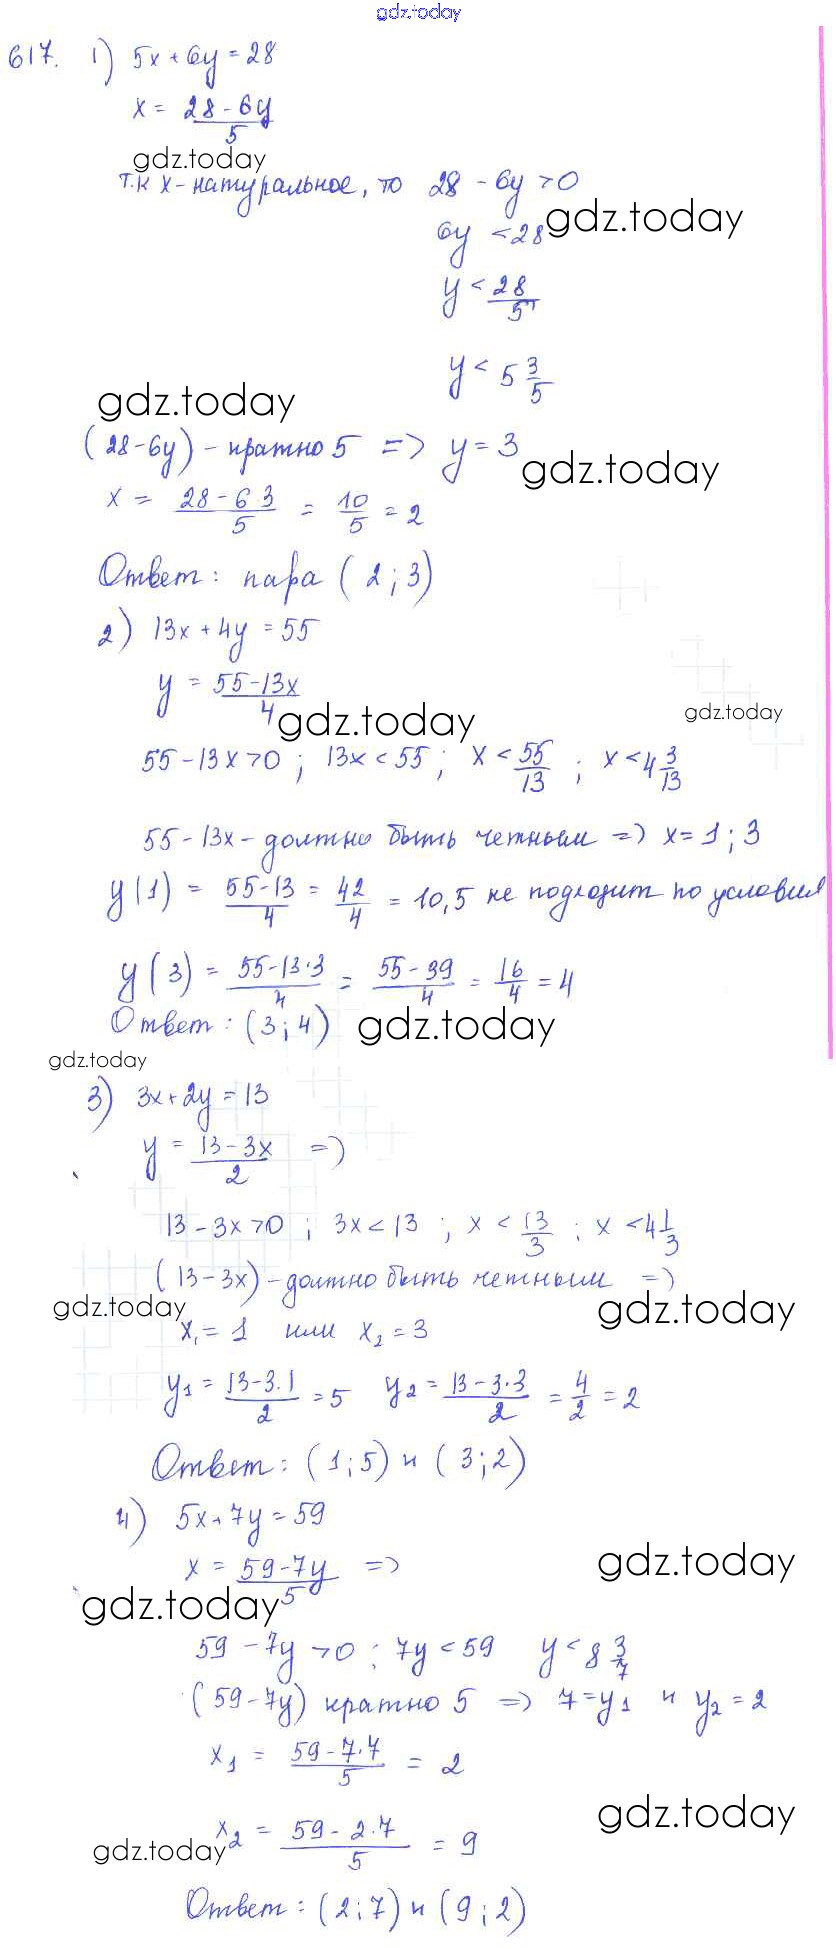 gdz.today
617. 1) 5x + 6y = 28
x = (28 - 6y)/5
gdz.today
т.к x - натуральное, то 28 - 6y > 0
gdz.today
6y < 28
y < 28/5
y < 5 3/5
gdz.today
(28 - 6y) - кратно 5 => y = 3
gdz.today
x = (28 - 6·3)/5 = 10/5 = 2
Ответ: пара (2; 3)
2) 13x + 4y = 55
y = (55 - 13x)/4
gdz.today
gdz.today
55 - 13x > 0 ; 13x < 55 ; x < 55/13 ; x < 4 3/13
55 - 13x - должно быть четным => x = 1 ; 3
y(1) = (55 - 13)/4 = 42/4 = 10,5 не подходит по условия
y(3) = (55 - 13·3)/4 = (55 - 39)/4 = 16/4 = 4
Ответ: (3; 4)
gdz.today
gdz.today
3) 3x + 2y = 13
y = (13 - 3x)/2 =>
13 - 3x > 0 ; 3x < 13 ; x < 13/3 ; x < 4 1/3
(13 - 3x) - должно быть четным =>
gdz.today
gdz.today
x₁ = 1 или x₂ = 3
y₁ = (13 - 3·1)/2 = 5 y₂ = (13 - 3·3)/2 = 4/2 = 2
Ответ: (1; 5) и (3; 2)
4) 5x + 7y = 59
x = (59 - 7y)/5 =>
gdz.today
gdz.today
59 - 7y > 0 ; 7y < 59 y < 8 3/7
(59 - 7y) кратно 5 => 7 = y₁ и y₂ = 2
x₁ = (59 - 7·7)/5 = 2
gdz.today
x₂ = (59 - 2·7)/5 = 9
gdz.today
Ответ: (2; 7) и (9; 2)